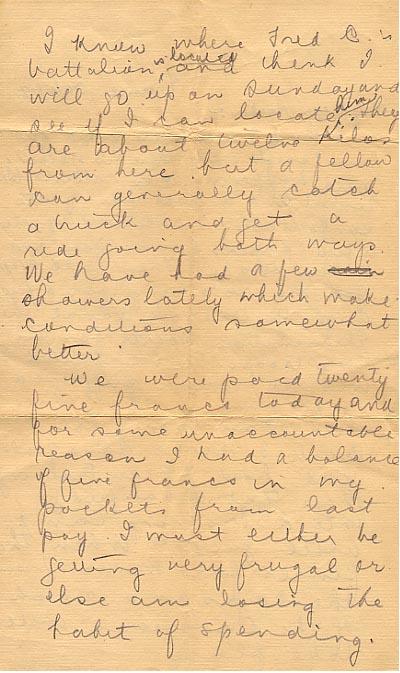 I know where Fred C. 's
battalion is located and think I
will go up on Sunday and
see if I can locate him. They
are about twelve Kilos
from here but a fellow
can generally catch
a truck and get a
ride going both ways.
We have had a few rain
showers lately which make
conditions somewhat
better.
We were paid twenty
five francs today and
for some unaccountable
reason I had a balance
of five francs in my
pockets from last
pay. I must either be
getting very frugal or
else am losing the
habit of spending.